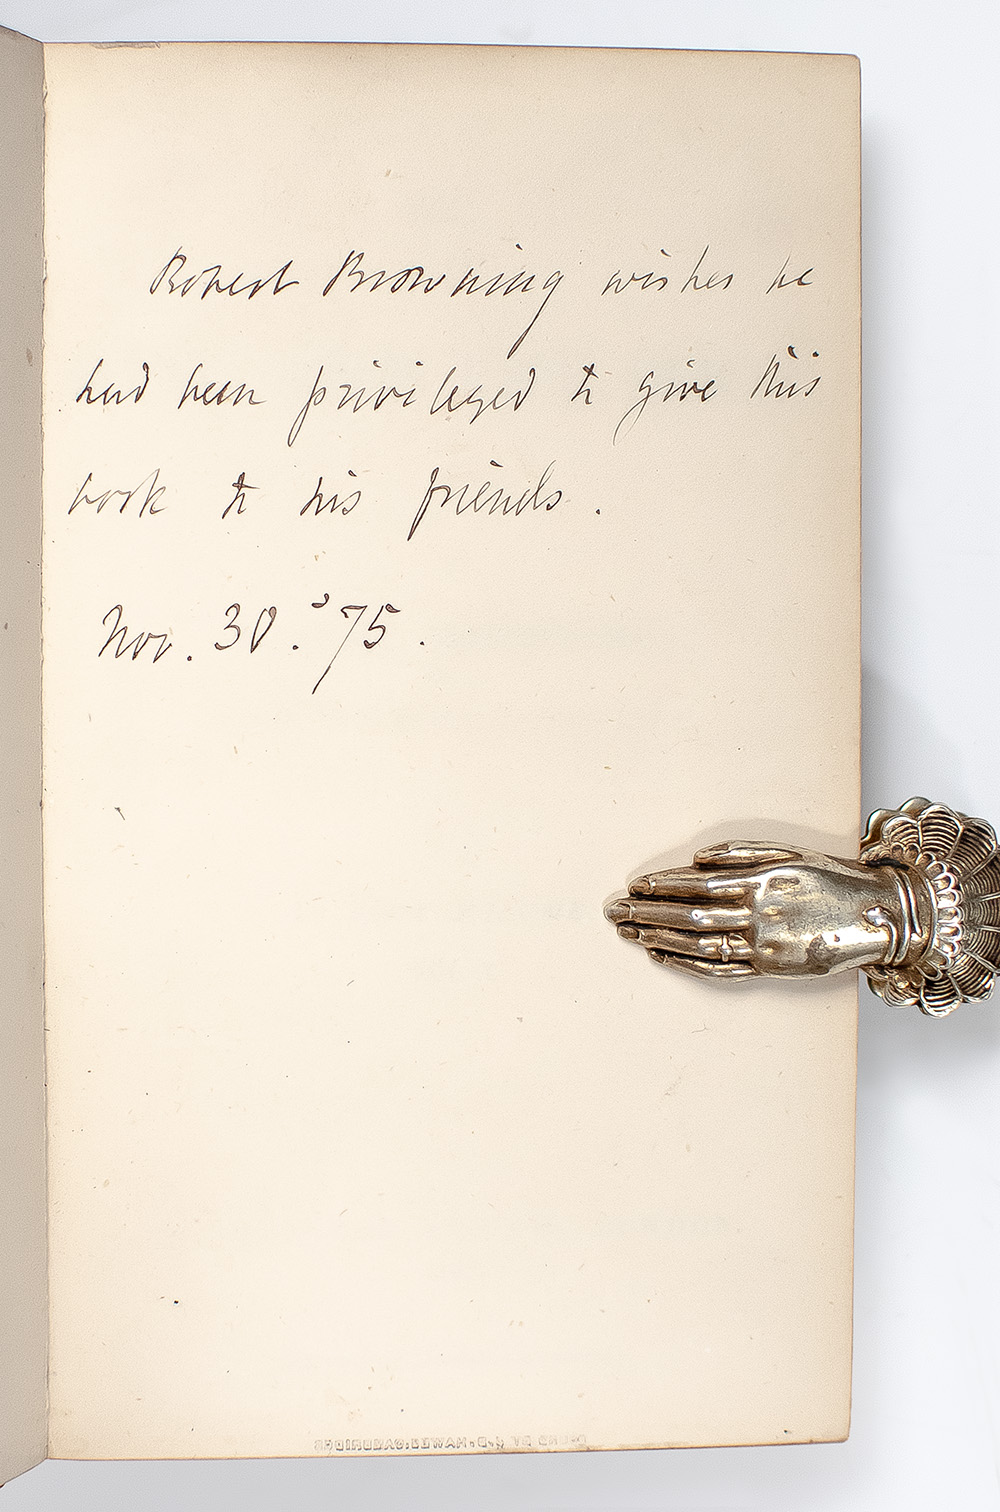 Robert Browning wishes he
had been privileged to give this
book to his friends.
Nov. 30. '75.